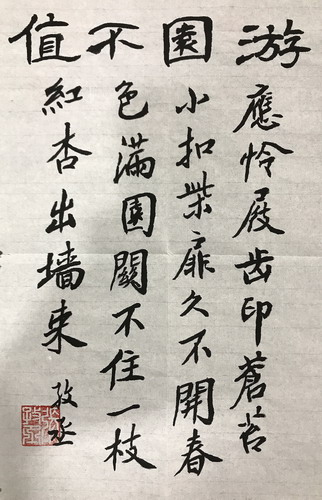 游園不值
應怜屐齿印蒼苔
小扣柴扉久不開春
色滿園關不住一枝
紅杏出墙来